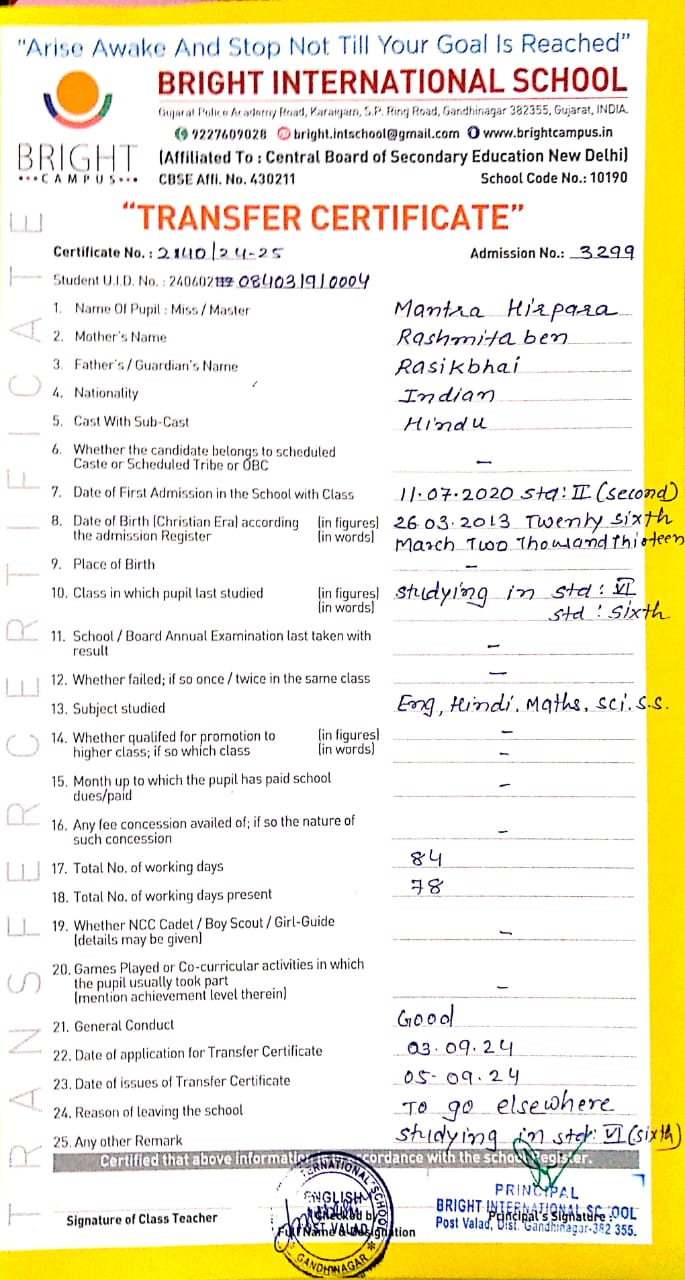 "Arise Awake And Stop Not Till Your Goal Is Reached"
BRIGHT INTERNATIONAL SCHOOL
Gujarat Police Academy Road, Karaigam, S.P. Ring Road, Gandhinagar 382355, Gujarat, INDIA.
9227609028 bright.intschool@gmail.com www.brightcampus.in
BRIGHT
CAMPUS
(Affiliated To : Central Board of Secondary Education New Delhi)
CBSE Affi. No. 430211 School Code No.: 10190
"TRANSFER CERTIFICATE"
TRANSFER CERTIFICATE
Certificate No. : 2140/24-25 Admission No.: 3299
Student U.I.D. No. : 240602 084031910004
1. Name Of Pupil : Miss / Master Mantra Hirpara
2. Mother's Name Rashmitaben
3. Father's / Guardian's Name Rasikbhai
4. Nationality Indian
5. Cast With Sub-Cast Hindu
6. Whether the candidate belongs to scheduled
Caste or Scheduled Tribe or OBC –
7. Date of First Admission in the School with Class 11.07.2020 std: II (second)
8. Date of Birth (Christian Era) according (in figures) 26.03.2013 Twenty sixth
the admission Register (in words) March Two Thousand thirteen
9. Place of Birth –
10. Class in which pupil last studied (in figures) studying in std : VI
(in words) std : sixth
11. School / Board Annual Examination last taken with
result –
12. Whether failed; if so once / twice in the same class –
13. Subject studied Eng, Hindi, Maths, Sci, S.S.
14. Whether qualifed for promotion to (in figures) –
higher class; if so which class (in words) –
15. Month up to which the pupil has paid school
dues/paid –
16. Any fee concession availed of; if so the nature of
such concession –
17. Total No. of working days 84
18. Total No. of working days present 78
19. Whether NCC Cadet / Boy Scout / Girl-Guide
(details may be given) –
20. Games Played or Co-curricular activities in which
the pupil usually took part
(mention achievement level therein) –
21. General Conduct Good
22. Date of application for Transfer Certificate 03.09.24
23. Date of issues of Transfer Certificate 05-09.24
24. Reason of leaving the school To go elsewhere
25. Any other Remark studying in std: VI (sixth)
Certified that above information is in accordance with the school Register.
Signature of Class Teacher
Checked by
Full Name & Designation
Principal's Signature
PRINCIPAL
BRIGHT INTERNATIONAL SCHOOL
Post Valad, Dist. Gandhinagar-382 355.
INTERNATIONAL SCHOOL
ENGLISH
MEDIUM
POST. VALAD
GANDHINAGAR